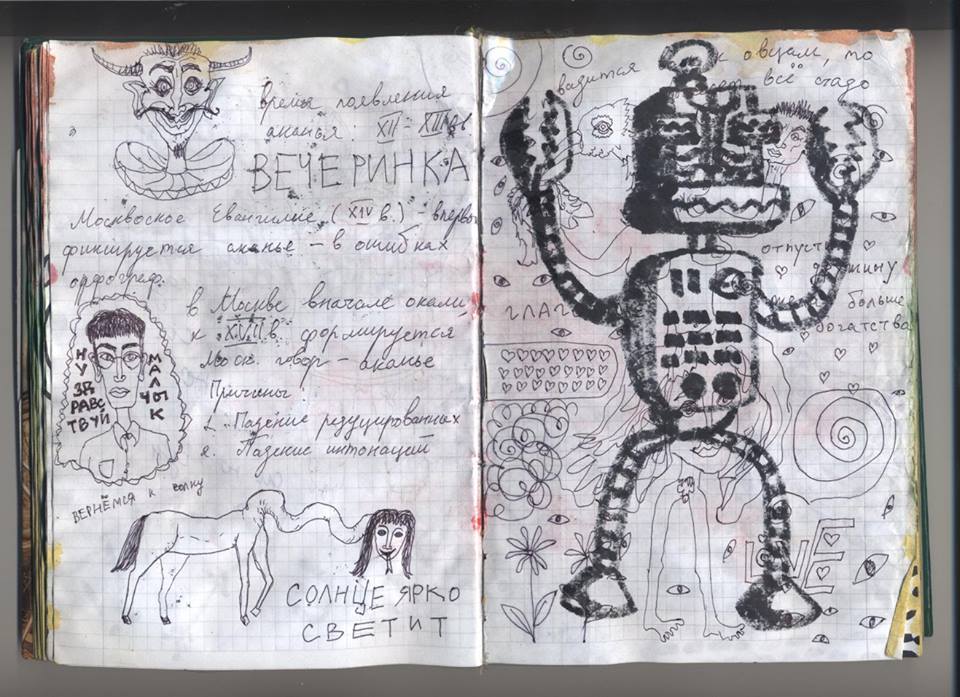 Время появления
аканья: XII - XIII вв
ВЕЧЕРИНКА
Москвоское Евангилие (XIV в.) - впервы
фиксируется аканье - в ошибках
орфограф.
в Москве вначале окали,
к XVII в. формируется
моск. говор - аканье
Причины
1. Падение редуцированных
2. Падение интонаций
НУ ЗДРАВСТВУЙ
МАЛЧЫК
ВЕРНЁМСЯ К волку
СОЛНЦЕ ЯРКО
СВЕТИТ
вадится к овцам, то
всё стадо
отпусти
больше
богатства
ГЛАГ
LOVE